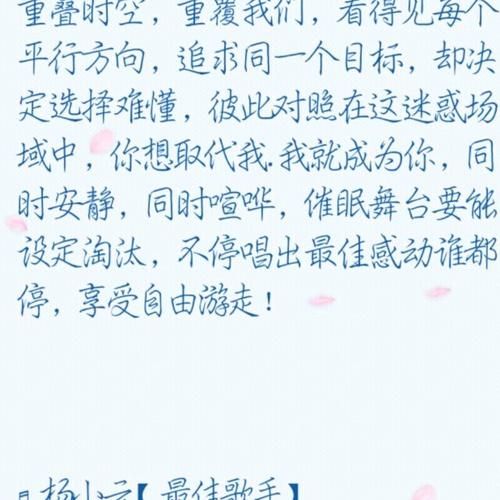 重叠时空，重覆我们，看得见每个
平行方向，追求同一个目标，却决
定选择难懂，彼此对照在这迷惑场
域中，你想取代我.我就成为你，同
时安静，同时喧哗，催眠舞台要能
设定淘汰，不停唱出最佳感动谁都
停，享受自由游走！
杨小云【最佳歌手】